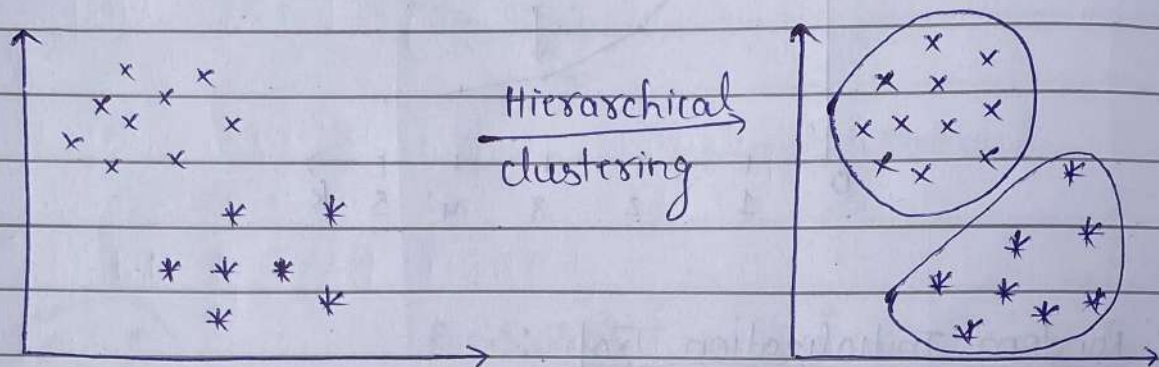 Hierarchical
clustering